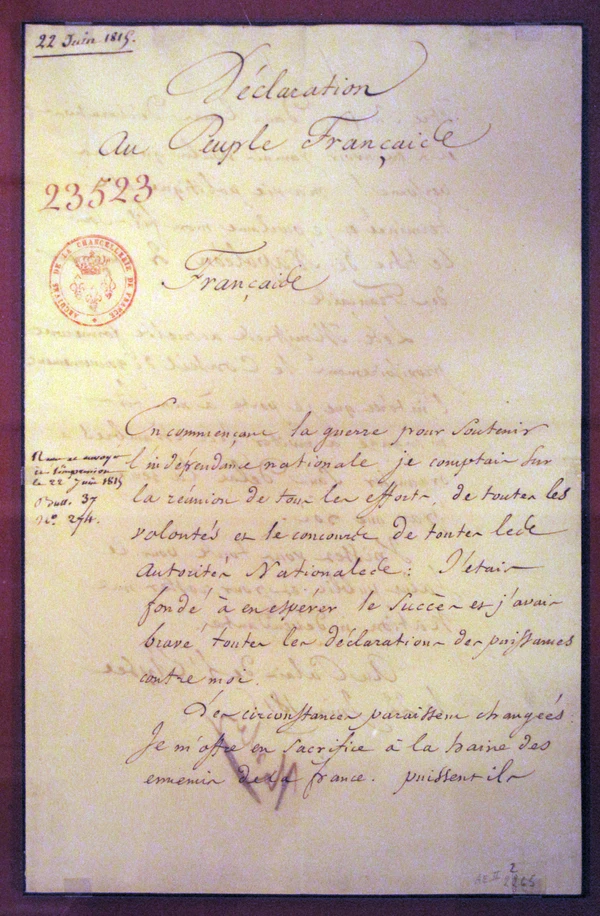 22 Juin 1815.
Déclaration
Au Peuple Français
23523
ARCHIVES DE LA CHANCELLERIE DE FRANCE
Français
En commençant la guerre pour soutenir
l'indépendance nationale, je comptais sur
la réunion de tous les efforts, de toutes les
volontés et le concours de toutes les
autorités Nationales: J'étais
fondé à en espérer le succès et j'avais
bravé toutes les déclarations des puissances
contre moi.
Les circonstances paraissent changées.
Je m'offre en sacrifice à la haine des
ennemis de la france. puissent ils
l'impression
le 22 Juin 1815
Bull. 37
N.º 274.
AE II 2265